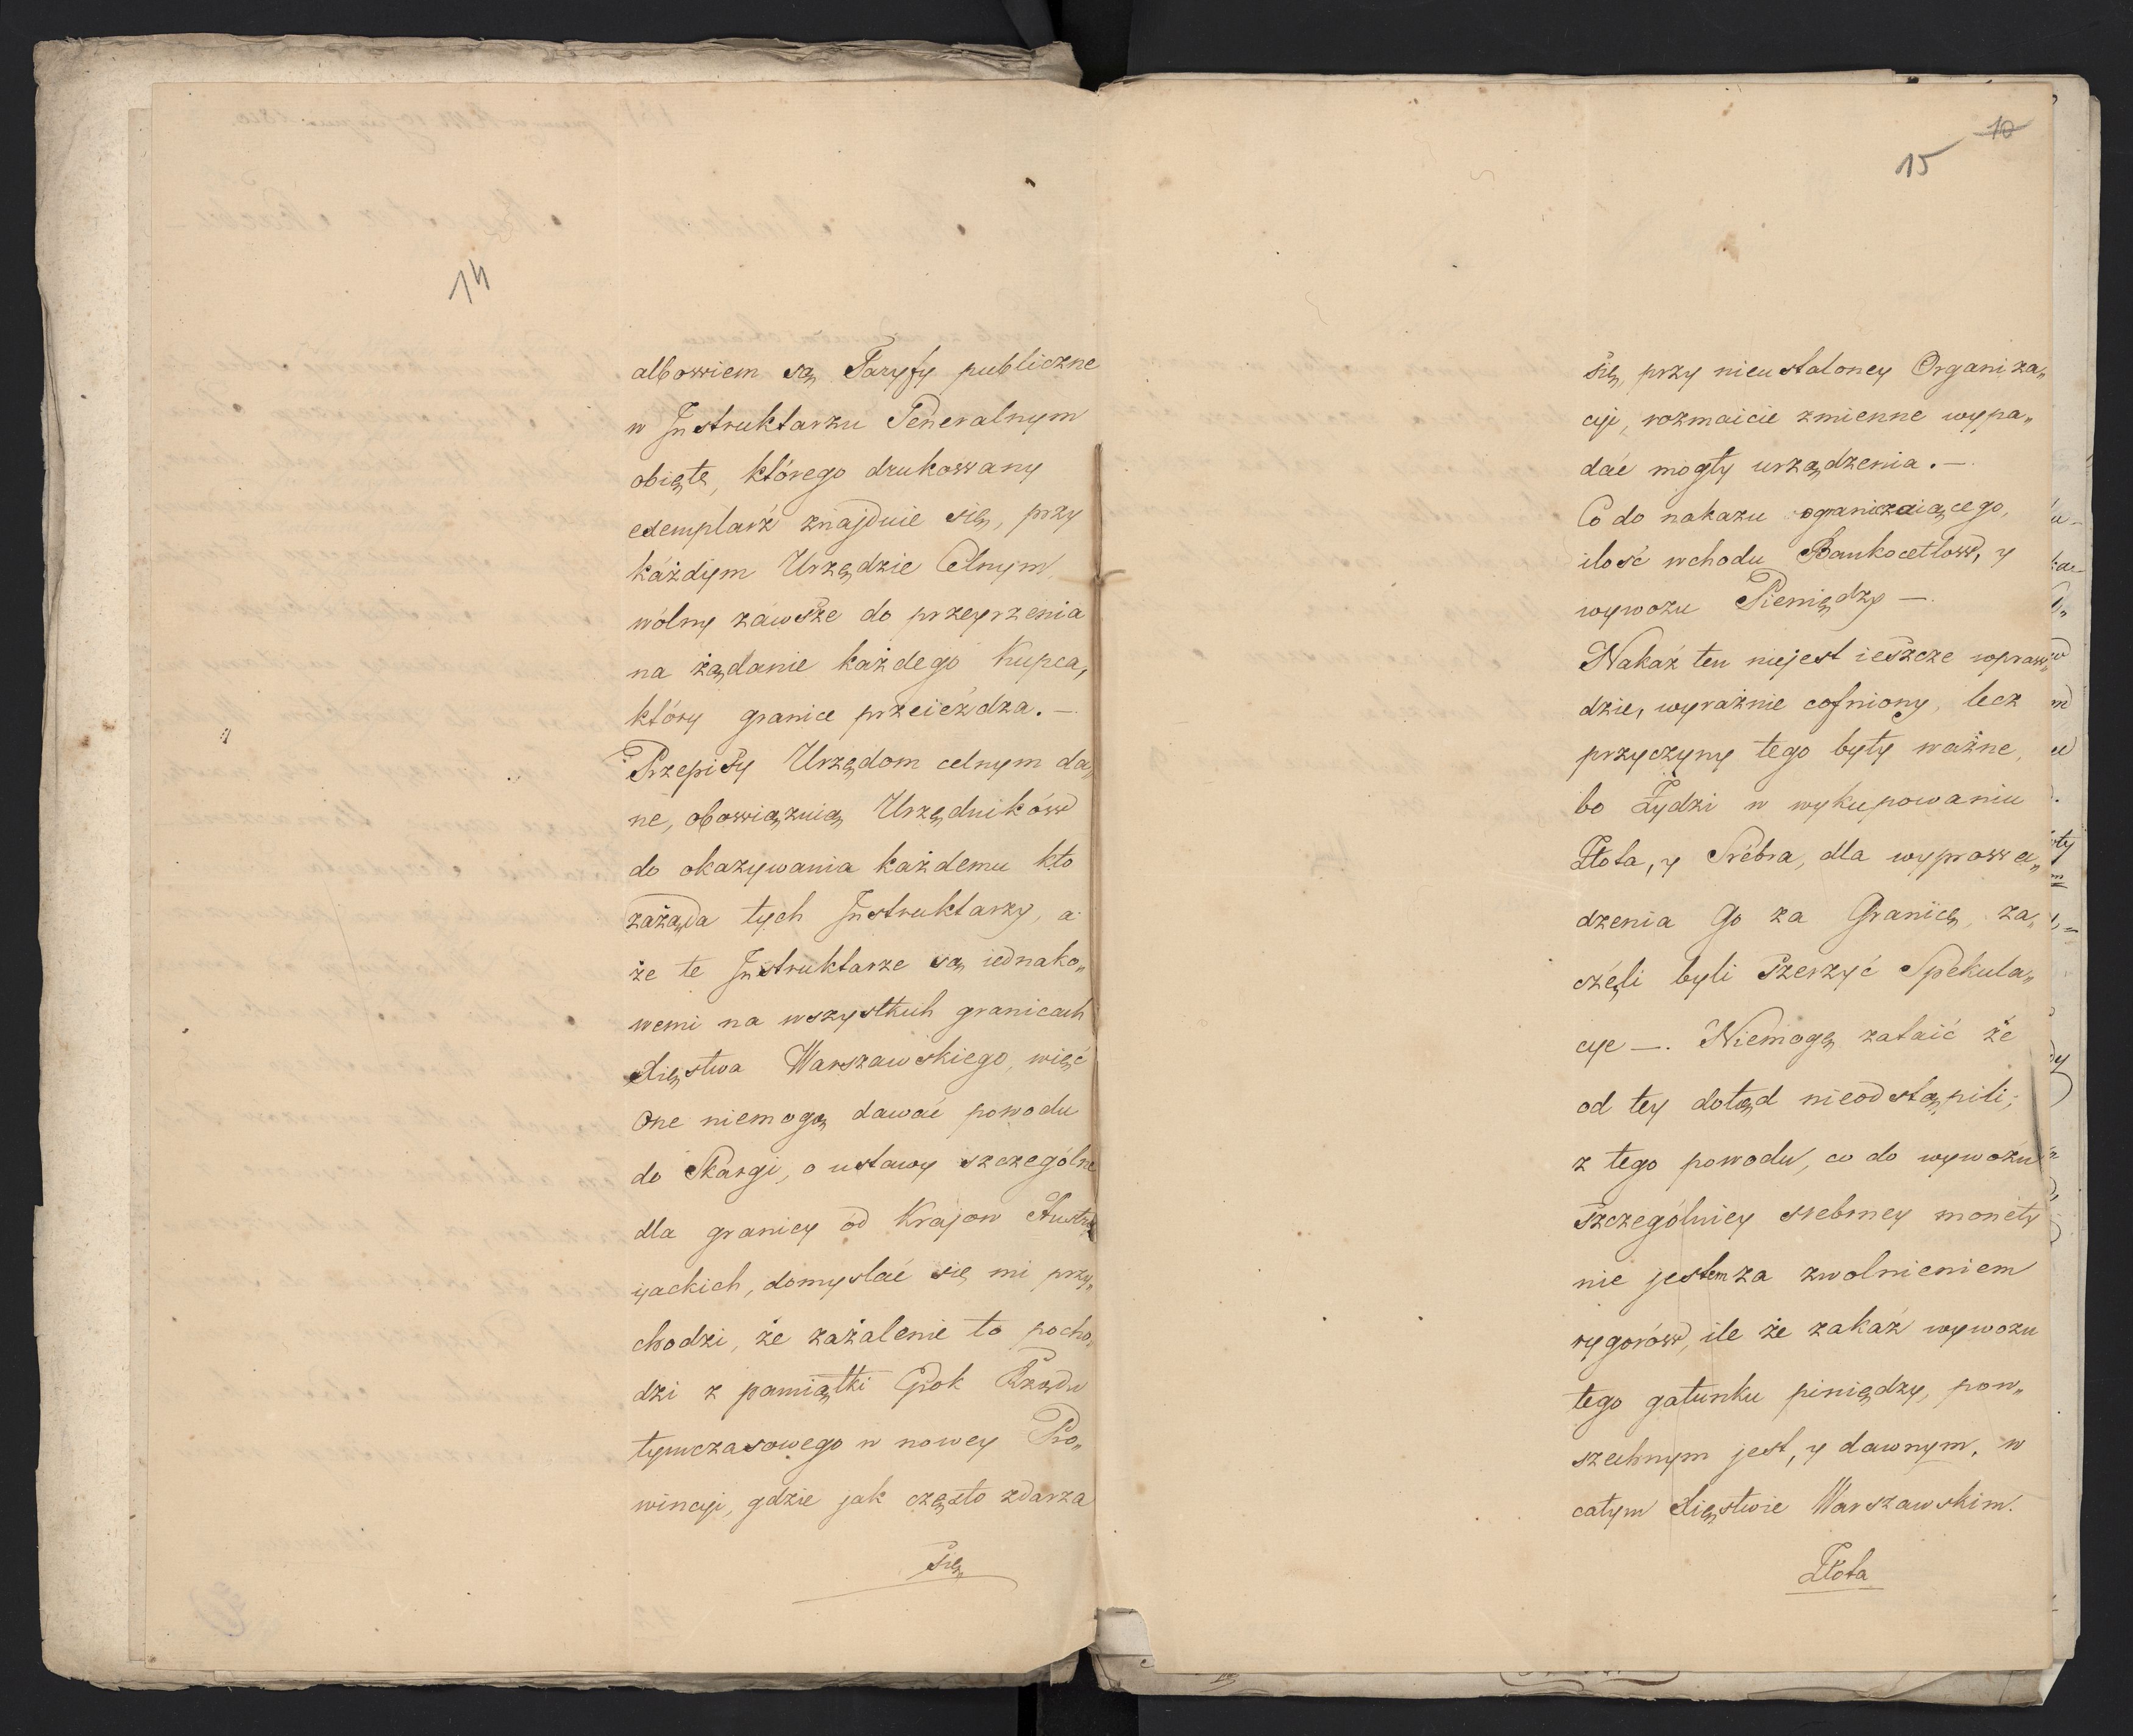 14
albowiem są Taryfy publiczne
w Instruktarzu Generalnym
obięte, którego drukowany
exemplarz znajduie się, przy
każdym Urzędzie Celnym
wólny zawsze do przeyrzenia
na żądanie każdego Kupca,
który granice przeieżdza. —
Przepisy Urzędom celnym da„
ne, obowiązuią Urzędników
do okazywania każdemu kto
zażąda tych Instruktarzy, a
że te Instruktarze są iednako„
wemi na wszystkich granicach
Xięstwa Warszawskiego, więc
One niemogą dawać powodu
do Skargi, o ustawy szczególne
dla granicy od Krajow Austry
yackich, domyslać się mi przy„
chodzi, że zażalenie to pocho„
dzi z pamiątki Epok Rządu
tymczasowego w nowey Pro„
wincyi, gdzie jak często zdarza
się
10
15
się, przy nieustaloney Organiza„
cyi, rozmaicie zmienne wypa„
dać mogły urządzenia. —
Co do nakazu ograniczaiącego,
ilość wchodu Bankocetlow, y
wywozu Pieniędzy —.
Nakaz ten niejest ieszcze wpraw„
dzie, wyraźnie cofniony, lecz
przyczyny tego były ważne,
bo Żydzi w wykupowaniu
Złota, y Srebra, dla wyprowa„
dzenia Go za Granicę, za„
częli byli szerzyć Spekula„
cye —. Niemogę zataić że
od tey dotąd nieodstąpili;
z tego powodu, co do wywozu
szczególniey srebrney monety
nie jestem za zwolnieniem
rygorów, ile że zakaz wywozu
tego gatunku piniędzy, pow„
szechnym jest, y dawnym, w
całym Xięstwie Warszawskim.
Złota